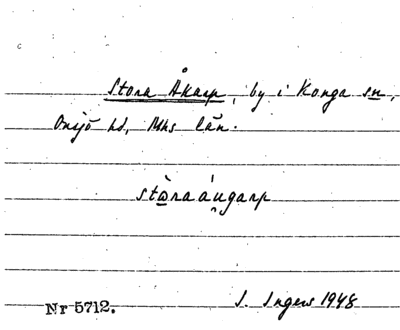 Stora Åkarp, by i Konga sn,
Onsjö hd, Mhs län.
stòraáu̯garp
Nr 5712. I. Ingers 1948